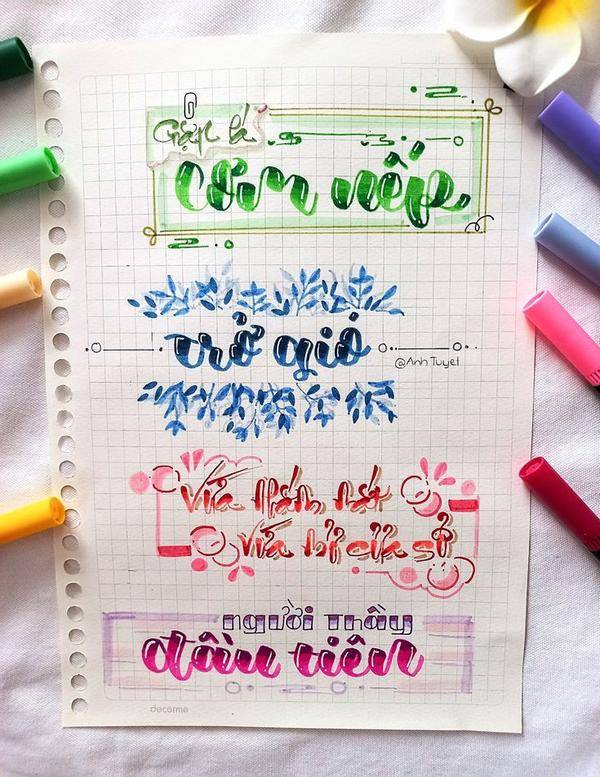 Gặp lá
cơm nếp
trở gió
@Anh Tuyet
Vừa nhắm mắt
Vừa mở cửa sổ
Người Thầy
đầu tiên
decorme